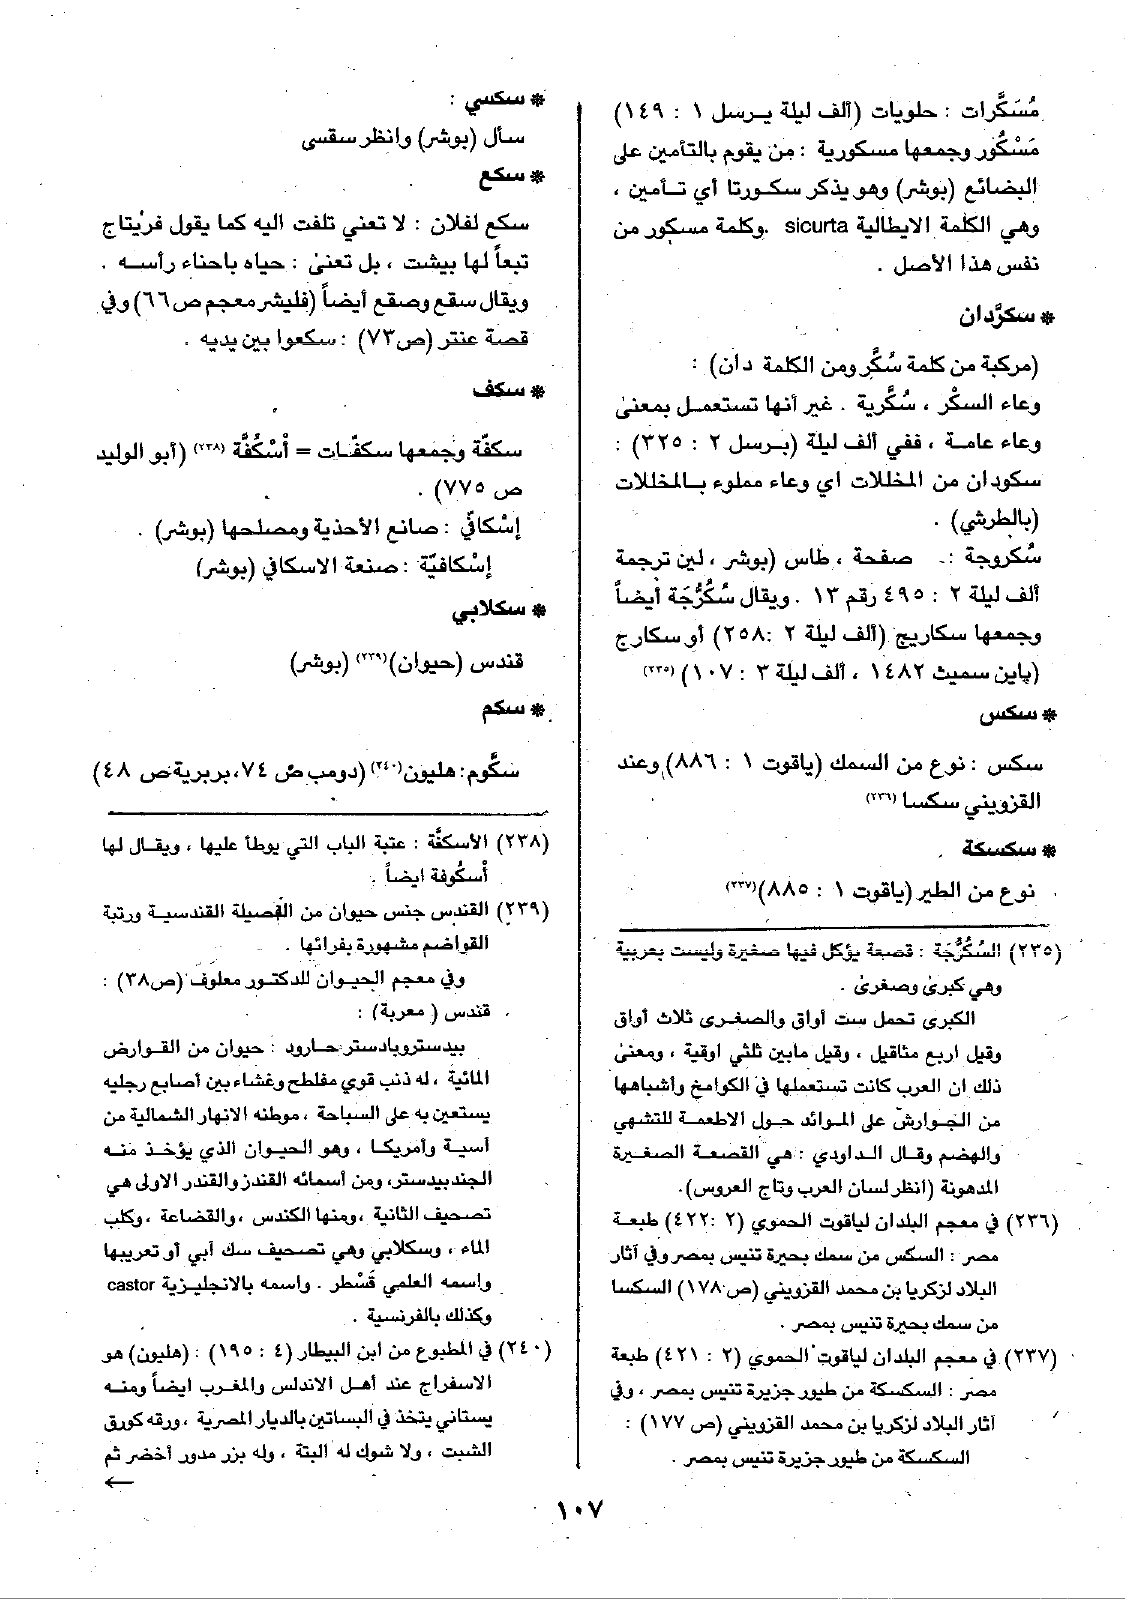 مُسَكَّرات : حلويات (ألف ليلة برسل ١ : ١٤٩)
مَسْكُور وجمعها مسكورية : من يقوم بالتأمين على
البضائع (بوشر) وهو يذكر سكورتا أي تأمين ،
وهي الكلمة الايطالية sicurta .وكلمة مسكور من
نفس هذا الأصل .
* سكرَّدان
(مركبة من كلمة سُكَّر ومن الكلمة دأن) :
وعاء السكر ، سُكَّرية . غير أنها تستعمل بمعنى
وعاء عامة ، ففي ألف ليلة (برسل ٢ : ٣٢٥) :
سكودان من المخللات اي وعاء مملوء بالمخللات
(بالطرشي) .
سُكروجة : صفحة ، طاس (بوشر ، لين ترجمة
ألف ليلة ٢ : ٤٩٥ رقم ١٣ . ويقال سُكُرُّجَة أيضاً
وجمعها سكاريج (ألف ليلة ٢ :٢٥٨) أو سكارج
(پاين سميث ١٤٨٢ ، ألف ليلة ٣ : ١٠٧) (٢٣٥)
* سكس
سكس : نوع من السمك (ياقوت ١ : ٨٨٦) وعند
القزويني سكسا (٢٣٦)
* سكسكة
نوع من الطير (ياقوت ١ : ٨٨٥)(٢٣٧)
(٢٣٥) السُكُرُّجَة : قصعة يؤكل فيها صغيرة وليست بعربية
وهي كبرى وصغرى .
الكبرى تحمل ست أواق والصغرى ثلاث أواق
وقيل اربع مثاقيل ، وقيل مابين ثلثي اوقية ، ومعنى
ذلك ان العرب كانت تستعملها في الكوامخ وأشباهها
من الجوارش على الموائد حول الاطعمة للتشهي
والهضم وقال الداودي : هي القصعة الصغيرة
المدهونة (انظر لسان العرب وتاج العروس).
(٢٣٦) في معجم البلدان لياقوت الحموي (٢ :٤٢٢) طبعة
مصر : السكس من سمك بحيرة تنيس بمصر وفي آثار
البلاد لزكريا بن محمد القزويني (ص ١٧٨) السكسا
من سمك بحيرة تنيس بمصر .
(٢٣٧) في معجم البلدان لياقوت الحموي (٢ : ٤٢١) طبعة
مصر : السكسكة من طيور جزيرة تنيس بمصر ، وفي
آثار البلاد لزكريا بن محمد القزويني (ص ١٧٧) :
السكسكة من طيور جزيرة تنيس بمصر .
* سكسي :
سأل (بوشر) وانظر سقسى
* سكع
سكع لفلان : لا تعني تلفت اليه كما يقول فريْتاج
تبعاً لها بيشت ، بل تعنى : حياه باحناء رأسه .
ويقال سقع وصقع أيضاً (فليشر معجم ص٦٦) وفي
قصة عنتر (ص٧٣) : سكعوا بين يديه .
* سكف
سكفّة وجمعها سكفّات = أُسْكُفَّة (٢٣٨) (أبو الوليد
ص ٧٧٥) .
إسْكافيّ : صانع الأحذية ومصلحها (بوشر) .
إسْكافيّة : صنعة الاسكافي (بوشر)
* سكلابي
قندس (حيوان)(٢٣٩) (بوشر)
* سكم
سكُّوم: هليون(٢٤٠) (دومب ص ٧٤، بربرية ص ٤٨)
(٢٣٨) الأسكفَّة : عتبة الباب التي يوطأ عليها ، ويقال لها
أسكُوفة ايضاً .
(٢٣٩) القندس جنس حيوان من الفصيلة القندسية ورتبة
القواضم مشهورة بفرائها .
وفي معجم الحيوان للدكتور معلوف (ص٣٨) :
قندس ( معربة) :
بيدستروبادستر حارود : حيوان من القوارض
المائية ، له ذنب قوي مفلطح وغشاء بين أصابع رجليه
يستعين به على السباحة ، موطنه الانهار الشمالية من
أسية وأمريكا ، وهو الحيوان الذي يؤخذ منه
الجندبيدستر، ومن أسمائه القندز والقندر الاولى هي
تصحيف الثانية ، ومنها الكندس ، والقضاعة ، وكلب
الماء ، وسكلابي وهي تصحيف سك أبي أو تعريبها
واسمه العلمي قَسْطر . واسمه بالانجليزية castor
وكذلك بالفرنسية .
(٢٤٠) في المطبوع من ابن البيطار (٤ : ١٩٥) : (هليون) هو
الاسفراج عند أهل الاندلس والمغرب ايضاً ومنه
بستاني يتخذ في البساتين بالديار المصرية ، ورقه كورق
الشبت ، ولا شوك له البتة ، وله بزر مدور أخضر ثم
←
١٠٧